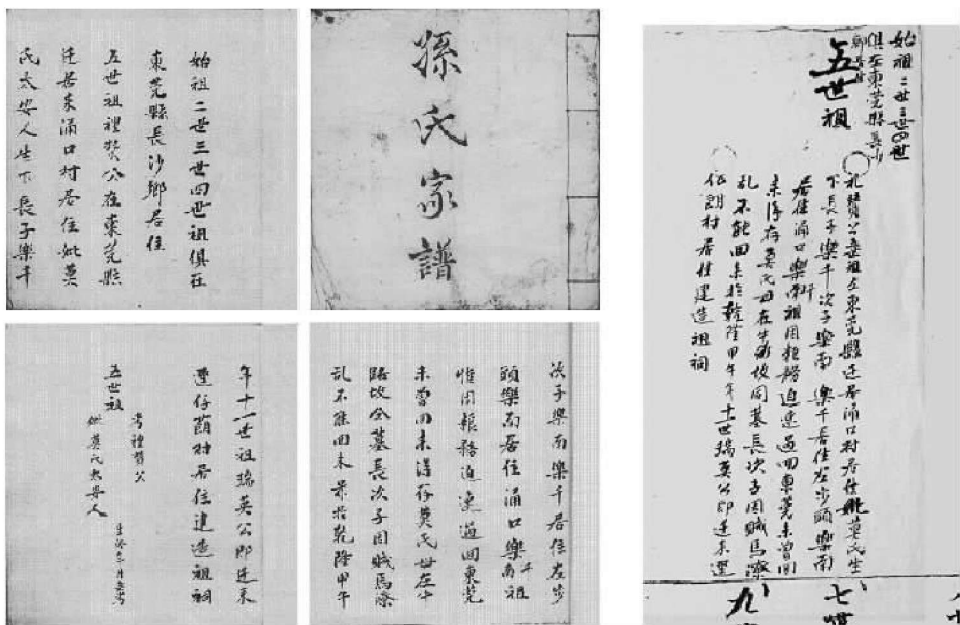 孫氏家譜
始祖二世三世四世祖俱在
東莞縣長沙鄉居住
五世祖禮贊公在東莞縣
迁居來涌口村居住妣莫
氏太安人生下長子樂千
次子樂南樂千居住左步
頭樂南居住涌口樂南千祖
惟因粮務迫速過回東莞
未曾回來淂存莫氏世在
坟仝墓長次子因賊馬際
乱不能回來於乾隆甲午
年十一世祖瑞英公即迁來
居住建造祖祠
五世祖
考禮贊公
妣莫氏太安人
始祖二世三世四世
俱在東莞縣長沙
鄉居住
五世祖
礼贊公在東莞縣迁居涌口村居住妣莫氏生
下長子樂千次子樂南 樂千居住左步頭樂南
居住涌口樂南千祖因粮務迫速過回東莞未曾回
來淂存莫氏世在坟同墓長次子因賊馬際
乱不能回來於乾隆甲午年十一世瑞英公即迁來
仔朗村居住建造祖祠
七世
九